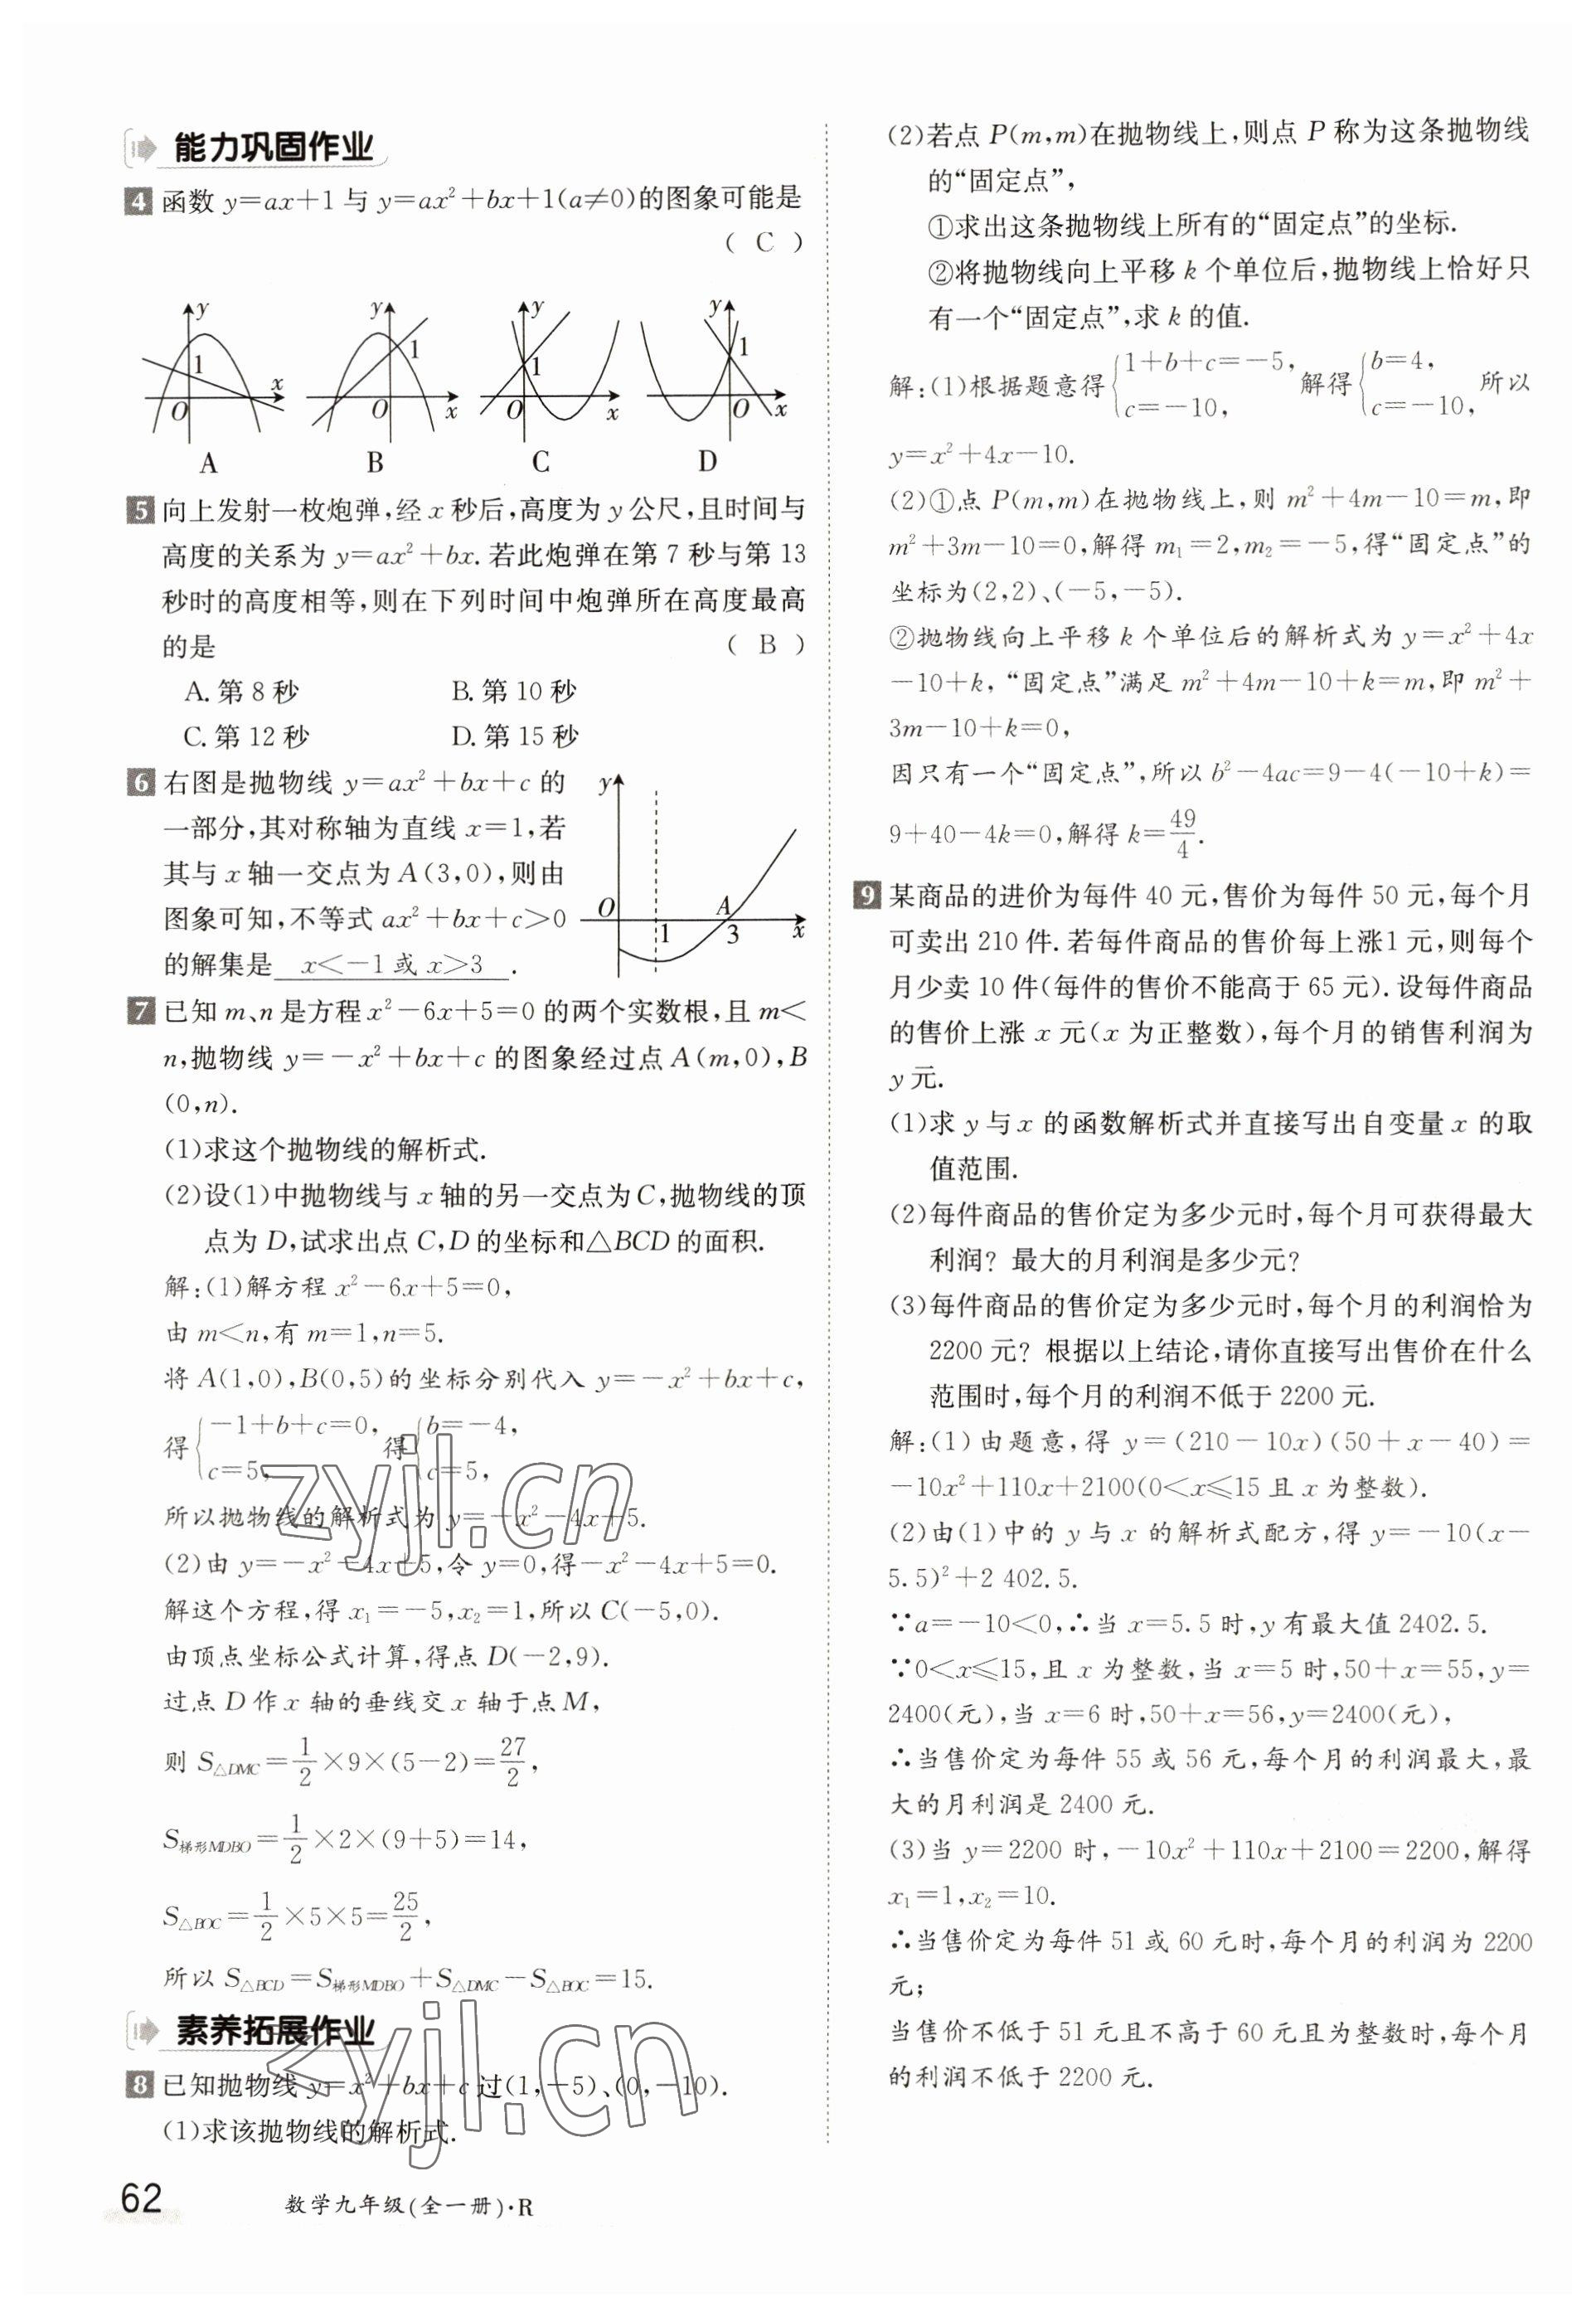 能力巩固作业
4 函数 y=ax+1 与 y=ax²+bx+1(a≠0)的图象可能是
( C )
y 1 O x
A
y 1 O x
B
y 1 O x
C
y 1 O x
D
5 向上发射一枚炮弹,经 x 秒后,高度为 y 公尺,且时间与
高度的关系为 y=ax²+bx. 若此炮弹在第 7 秒与第 13
秒时的高度相等,则在下列时间中炮弹所在高度最高
的是 ( B )
A. 第 8 秒 B. 第 10 秒
C. 第 12 秒 D. 第 15 秒
6 右图是抛物线 y=ax²+bx+c 的
一部分,其对称轴为直线 x=1,若
其与 x 轴一交点为 A(3,0),则由
图象可知,不等式 ax²+bx+c>0
的解集是 x<-1 或 x>3 .
y O A 1 3 x
7 已知 m、n 是方程 x²-6x+5=0 的两个实数根,且 m<
n,抛物线 y=-x²+bx+c 的图象经过点 A(m,0),B
(0,n).
(1)求这个抛物线的解析式.
(2)设(1)中抛物线与 x 轴的另一交点为 C,抛物线的顶
点为 D,试求出点 C,D 的坐标和△BCD 的面积.
解:(1)解方程 x²-6x+5=0,
由 m<n,有 m=1,n=5.
将 A(1,0),B(0,5)的坐标分别代入 y=-x²+bx+c,
得{-1+b+c=0, c=5, 得{b=-4, c=5,
所以抛物线的解析式为 y=-x²-4x+5.
(2)由 y=-x²-4x+5,令 y=0,得-x²-4x+5=0.
解这个方程,得 x₁=-5,x₂=1,所以 C(-5,0).
由顶点坐标公式计算,得点 D(-2,9).
过点 D 作 x 轴的垂线交 x 轴于点 M,
则 S△DMC=1/2×9×(5-2)=27/2,
S梯形MDBO=1/2×2×(9+5)=14,
S△BOC=1/2×5×5=25/2,
所以 S△BCD=S梯形MDBO+S△DMC-S△BOC=15.
素养拓展作业
8 已知抛物线 y=x²+bx+c 过(1,-5)、(0,-10).
(1)求该抛物线的解析式.
62
数学九年级(全一册)·R
(2)若点 P(m,m)在抛物线上,则点 P 称为这条抛物线
的“固定点”,
①求出这条抛物线上所有的“固定点”的坐标.
②将抛物线向上平移 k 个单位后,抛物线上恰好只
有一个“固定点”,求 k 的值.
解:(1)根据题意得{1+b+c=-5, c=-10, 解得{b=4, c=-10, 所以
y=x²+4x-10.
(2)①点 P(m,m)在抛物线上,则 m²+4m-10=m,即
m²+3m-10=0,解得 m₁=2,m₂=-5,得“固定点”的
坐标为(2,2)、(-5,-5).
②抛物线向上平移 k 个单位后的解析式为 y=x²+4x
-10+k, “固定点”满足 m²+4m-10+k=m,即 m²+
3m-10+k=0,
因只有一个“固定点”,所以 b²-4ac=9-4(-10+k)=
9+40-4k=0,解得 k=49/4.
9 某商品的进价为每件 40 元,售价为每件 50 元,每个月
可卖出 210 件. 若每件商品的售价每上涨1 元,则每个
月少卖 10 件(每件的售价不能高于 65 元). 设每件商品
的售价上涨 x 元(x 为正整数),每个月的销售利润为
y 元.
(1)求 y 与 x 的函数解析式并直接写出自变量 x 的取
值范围.
(2)每件商品的售价定为多少元时,每个月可获得最大
利润? 最大的月利润是多少元?
(3)每件商品的售价定为多少元时,每个月的利润恰为
2200 元? 根据以上结论,请你直接写出售价在什么
范围时,每个月的利润不低于 2200 元.
解:(1)由题意,得 y=(210-10x)(50+x-40)=
-10x²+110x+2100(0<x≤15 且 x 为整数).
(2)由(1)中的 y 与 x 的解析式配方,得 y=-10(x-
5.5)²+2 402.5.
∵a=-10<0,∴当 x=5.5 时,y 有最大值 2402.5.
∵0<x≤15,且 x 为整数,当 x=5 时,50+x=55,y=
2400(元),当 x=6 时,50+x=56,y=2400(元),
∴当售价定为每件 55 或 56 元,每个月的利润最大,最
大的月利润是 2400 元.
(3)当 y=2200 时,-10x²+110x+2100=2200,解得
x₁=1,x₂=10.
∴当售价定为每件 51 或 60 元时,每个月的利润为 2200
元;
当售价不低于 51 元且不高于 60 元且为整数时,每个月
的利润不低于 2200 元.
zyjl.cn
zyjl.cn